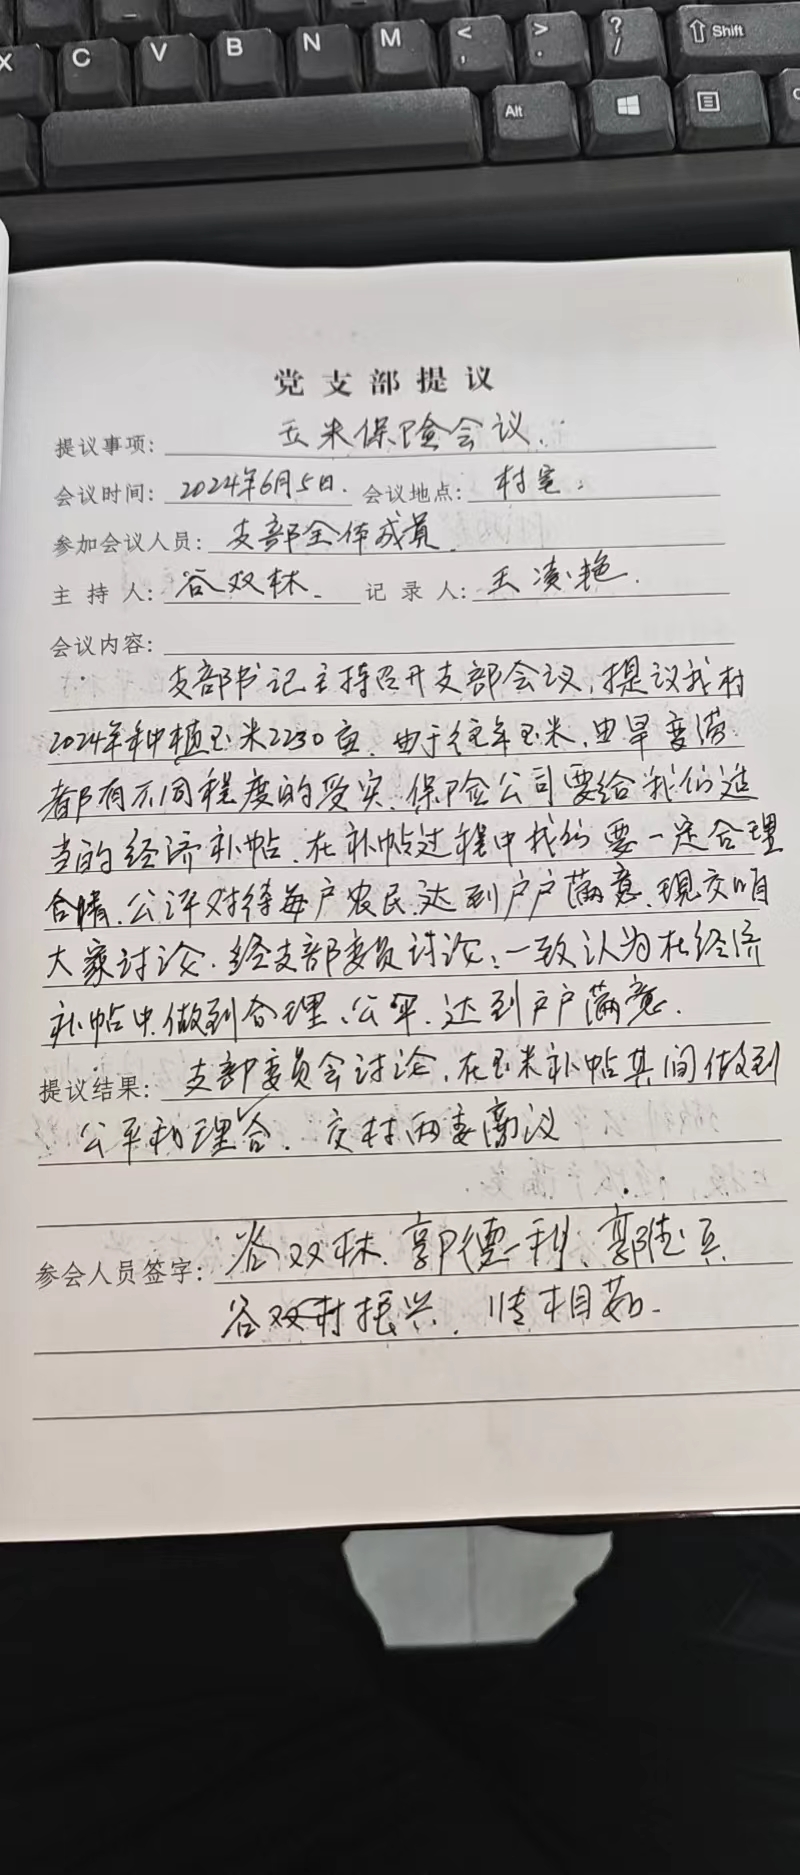 X C V B N M < , > . ? / Shift
Alt
党支部提议
提议事项: 玉米保险会议.
会议时间: 2024年6月5日. 会议地点: 村室.
参加会议人员: 支部全体成员.
主持人: 谷双林. 记录人: 王凌艳.
会议内容:
支部书记主持召开支部会议,提议我村
2024年种植玉米2230亩.由于往年玉米,由旱变涝
都有不同程度的受灾.保险公司要给我们适
当的经济补帖.在补帖过程中我们要一定合理
合情.公评对待每户农民.达到户户满意.现交咱
大家讨论.经支部委员讨论:一致认为在经济
补帖中做到合理、公平.达到户户满意.
提议结果: 支部委员会讨论.在玉米补帖其间做到
公平和理合.交村两委商议
参会人员签字: 谷双林.郭德利、郭兵
谷双村振兴. 相茹.